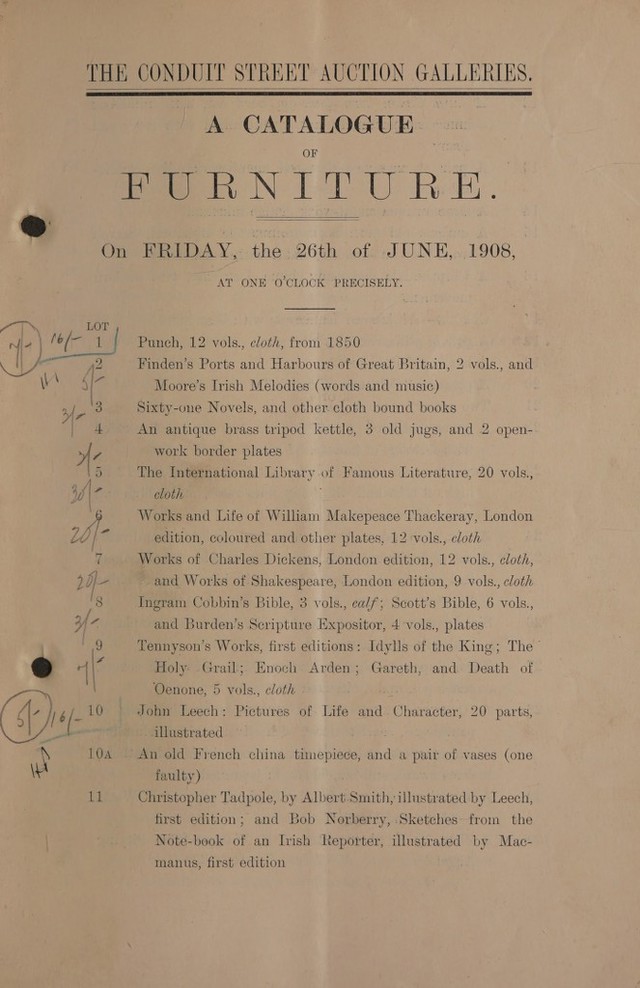 THE CONDUIT STREET AUCTION GALLERIES.
A CATALOGUE
OF
FURNITURE.
On FRIDAY, the 26th of JUNE, 1908,
AT ONE O'CLOCK PRECISELY.
LOT
16/- 1 Punch, 12 vols., cloth, from 1850
2 Finden's Ports and Harbours of Great Britain, 2 vols., and
Moore's Irish Melodies (words and music)
3 Sixty-one Novels, and other cloth bound books
4 An antique brass tripod kettle, 3 old jugs, and 2 open-
work border plates
5 The International Library of Famous Literature, 20 vols.,
cloth
6 Works and Life of William Makepeace Thackeray, London
20/- edition, coloured and other plates, 12 vols., cloth
7 Works of Charles Dickens, London edition, 12 vols., cloth,
20/- and Works of Shakespeare, London edition, 9 vols., cloth
8 Ingram Cobbin's Bible, 3 vols., calf; Scott's Bible, 6 vols.,
3/- and Burden's Scripture Expositor, 4 vols., plates
9 Tennyson's Works, first editions: Idylls of the King; The
Holy Grail; Enoch Arden; Gareth, and Death of
Oenone, 5 vols., cloth
16/- 10 John Leech: Pictures of Life and Character, 20 parts,
illustrated
10A An old French china timepiece, and a pair of vases (one
faulty)
11 Christopher Tadpole, by Albert Smith, illustrated by Leech,
first edition; and Bob Norberry, Sketches from the
Note-book of an Irish Reporter, illustrated by Mac-
manus, first edition